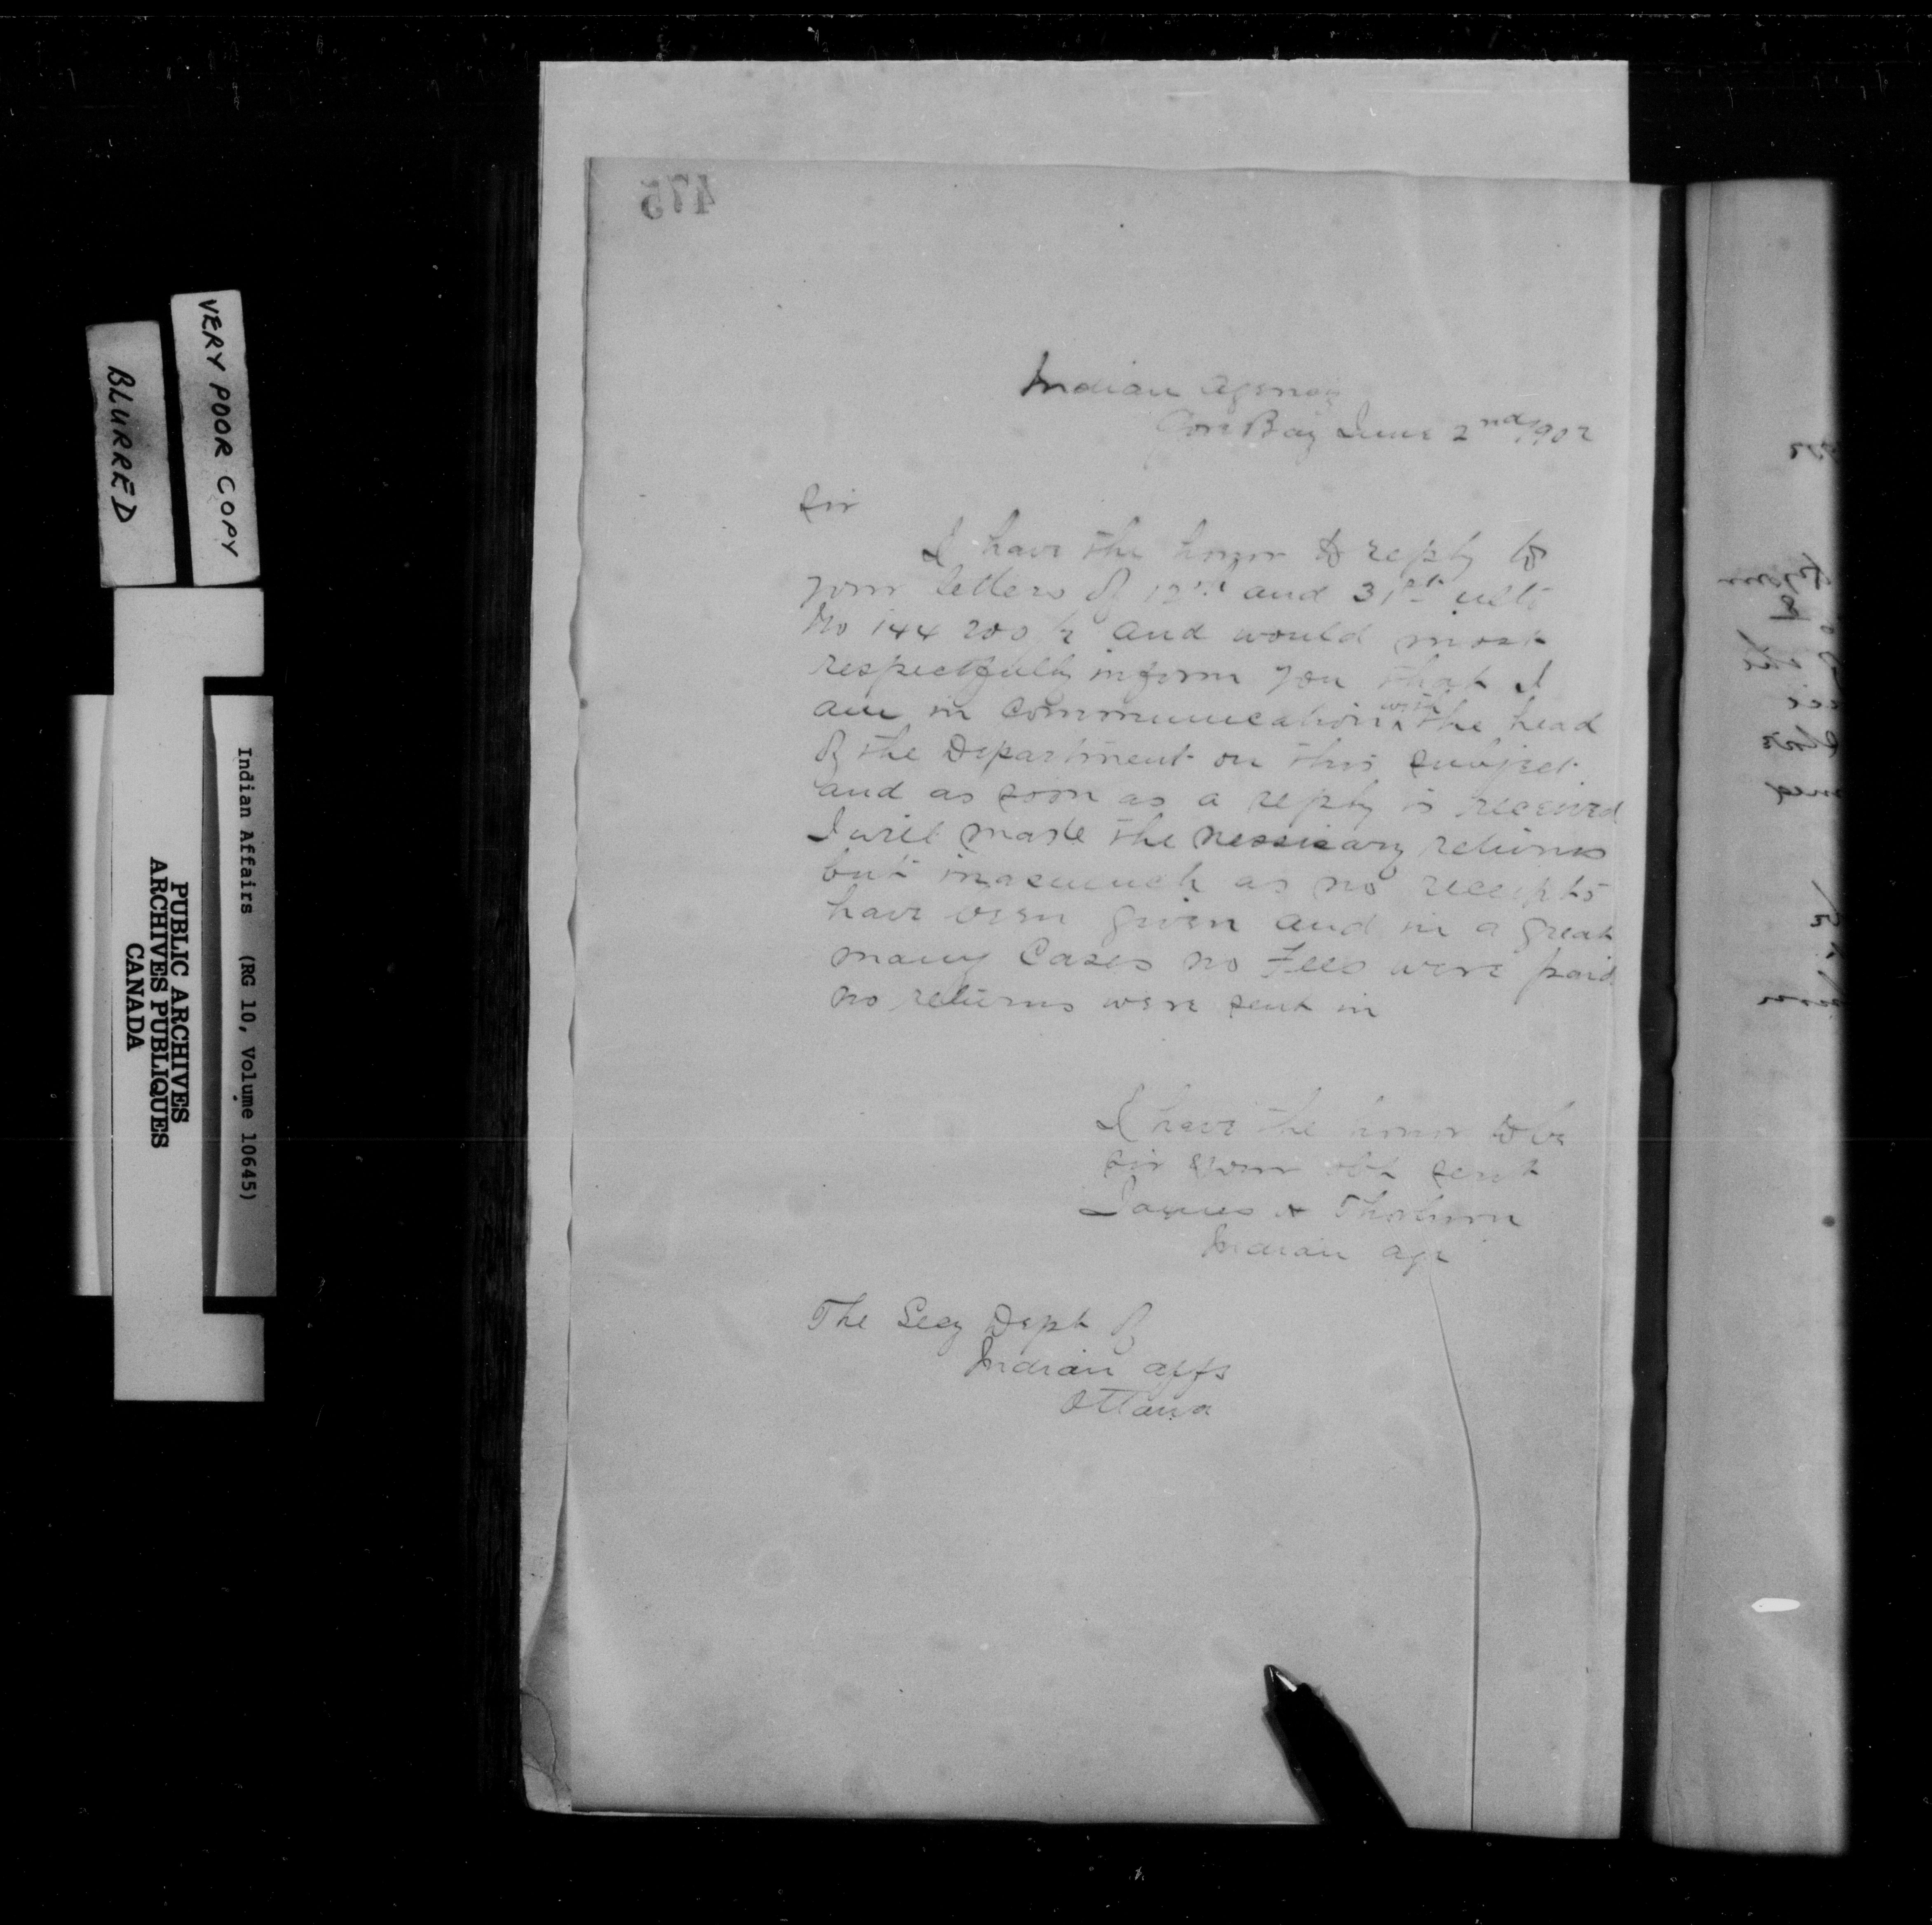 VERY POOR COPY
BLURRED
PUBLIC ARCHIVES
ARCHIVES PUBLIQUES
CANADA
Indian Affairs (RG 10, Volume 10645)
475
Indian Agency
Gore Bay June 2nd 1902
Sir
I have the honor to reply to
your letters of 12th and 31st ult
No 144 200/2 and would most
respectfully inform you that I
am in communication with the head
of the Department on this subject
and as soon as a reply is received
I will make the nessicary returns
but inasmuch as no receipts
have been given and in a great
many Cases no Fees were paid
no returns were sent in
I have the honor to be
Sir Your obt servt
James H Thorburn
Indian Agt
The Secy Dept of
Indian Affs
Ottawa